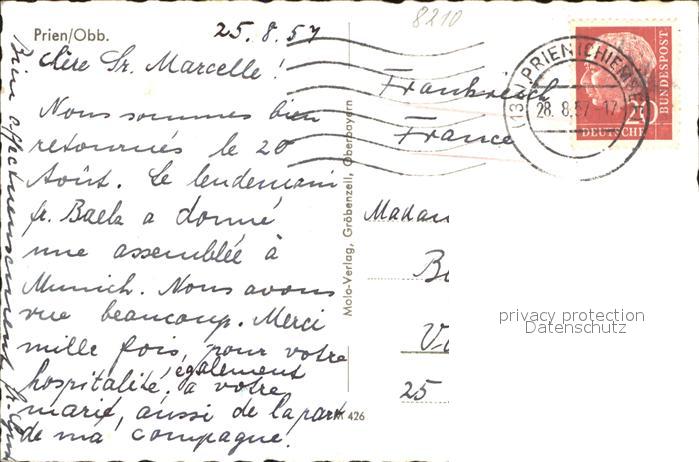 8210
Prien/Obb.
25. 8. 57
Chère Sr. Marcelle !
Nous sommes bien
retournés le 20
Août. Le lendemain
fr. Baela a donné
une assemblée à
Munich. Nous avons
vue beaucoup. Merci
mille fois, pour votre
hospitalité, également à votre
marié, aussi de la part
de ma compagne.
Bien affectueusement
Mola-Verlag, Gröbenzell, Oberbayern
426
Frankreich
France
Madam
25
PRIEN (CHIEMSEE)
(13
28. 8. 57 - 17
20
DEUTSCHE
BUNDESPOST
privacy protection
Datenschutz